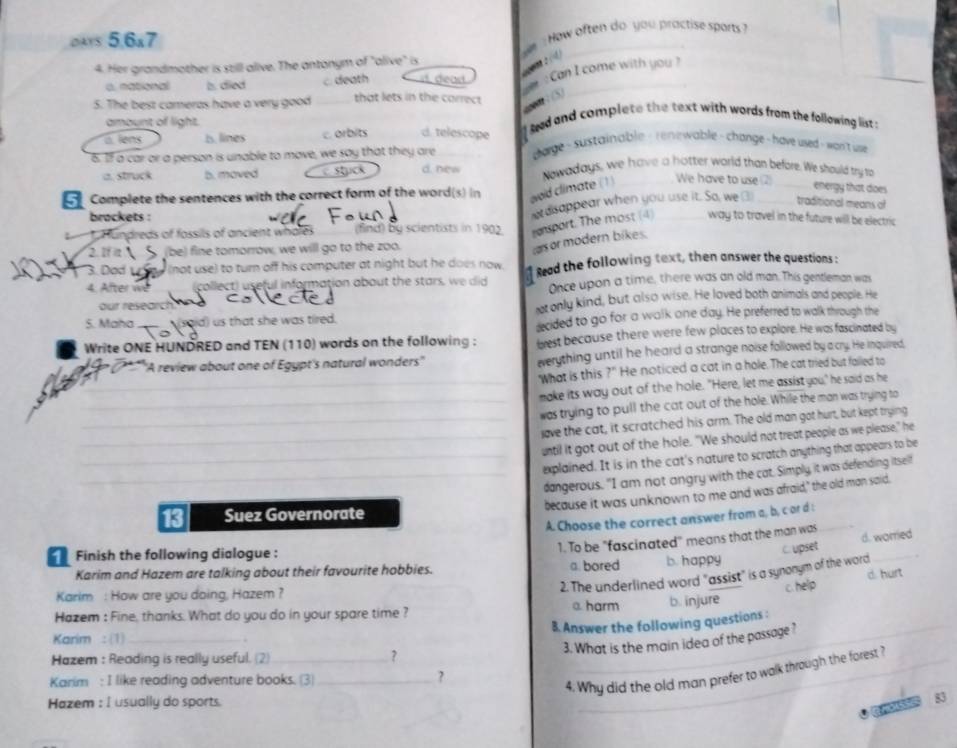 DAYS 5,6&7
4. Her grandmother is still alive. The antonym of "alive" is
a. national b. died c. death d. dead
5. The best cameras have a very good ______ that lets in the correct
amount of light.
a. lens b. lines c. orbits d. telescope
6. If a car or a person is unable to move, we say that they are
a. struck b. moved c. stuck d. new
5 Complete the sentences with the correct form of the word(s) in
brackets :
were Found
1. Hundreds of fossils of ancient whales (find) by scientists in 1902.
2. If it is (be) fine tomorrow, we will go to the zoo.
3. Dad (not use) to turn off his computer at night but he does now.
4. After we ______ (collect) useful information about the stars, we did
our research. had collected
5. Maha Told (said) us that she was tired.
Write ONE HUNDRED and TEN (110) words on the following :
"A review about one of Egypt's natural wonders"
13 Suez Governorate
1 Finish the following dialogue :
Karim and Hazem are talking about their favourite hobbies.
Karim : How are you doing, Hazem ?
Hazem : Fine, thanks. What do you do in your spare time ?
Karim : (1) ______ .
Hazem : Reading is really useful. (2) ______ ?
Karim : I like reading adventure books. (3) ______ ?
Hazem : I usually do sports.
: How often do you practise sports ?
: (4)
: Can I come with you ?
: (5)
Read and complete the text with words from the following list :
charge - sustainable - renewable - change - have used - won't use
Nowadays, we have a hotter world than before. We should try to
avoid climate (1) ______ . We have to use (2) ______ energy that does
not disappear when you use it. So, we (3) ______ traditional means of
transport. The most (4) ______ way to travel in the future will be electric
cars or modern bikes.
Read the following text, then answer the questions :
Once upon a time, there was an old man. This gentleman was
not only kind, but also wise. He loved both animals and people. He
decided to go for a walk one day. He preferred to walk through the
forest because there were few places to explore. He was fascinated by
everything until he heard a strange noise followed by a cry. He inquired,
"What is this ?" He noticed a cat in a hole. The cat tried but failed to
make its way out of the hole. "Here, let me assist you," he said as he
was trying to pull the cat out of the hole. While the man was trying to
save the cat, it scratched his arm. The old man got hurt, but kept trying
until it got out of the hole. "We should not treat people as we please," he
explained. It is in the cat's nature to scratch anything that appears to be
dangerous. "I am not angry with the cat. Simply, it was defending itself
because it was unknown to me and was afraid," the old man said.
A. Choose the correct answer from a, b, c or d :
1. To be "fascinated" means that the man was ______ .
a. bored b. happy c. upset d. worried
2. The underlined word "assist" is a synonym of the word ______ .
a. harm b. injure c. help d. hurt
B. Answer the following questions :
3. What is the main idea of the passage ?
4. Why did the old man prefer to walk through the forest ?
83